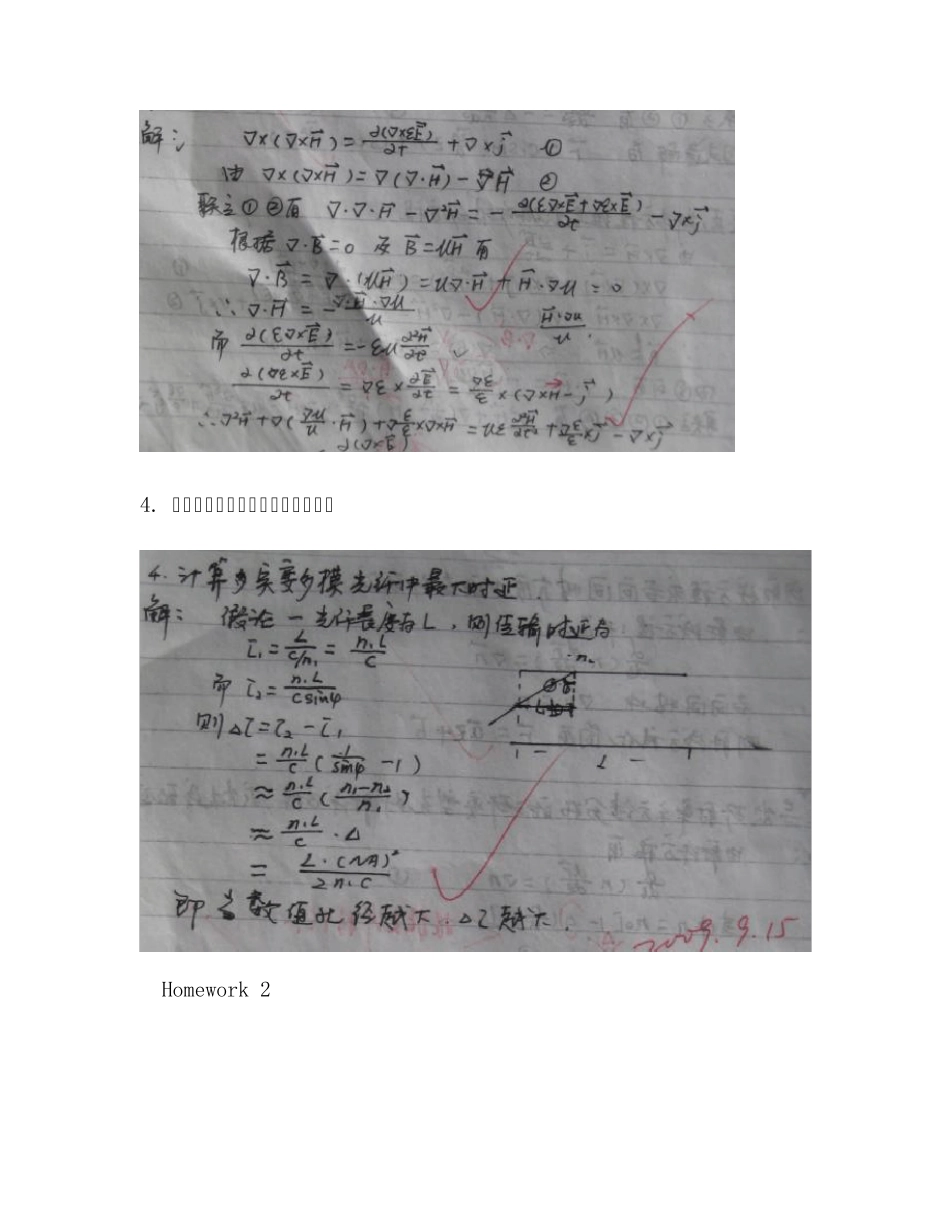 解: ∇×(∇×H⃗)=∂(∇×εE⃗)/∂t+∇×j⃗ ①
由 ∇×(∇×H⃗)=∇(∇·H⃗)-∇²H⃗ ②
联立①②有 ∇·∇·H⃗-∇²H⃗=-∂(ε∇×E⃗+∇ε×E⃗)/∂t-∇×j⃗
根据 ∇·B⃗=0 及 B⃗=μH⃗ 有
∇·B⃗=∇·(μH⃗)=μ∇·H⃗+H⃗·∇μ=0
∴∇·H⃗=- H⃗·∇μ/μ
而 ∂(ε∇×E⃗)/∂t=-εμ ∂²H⃗/∂t²
∂(∇ε×E⃗)/∂t=∇ε×∂E⃗/∂t=∇ε/ε×(∇×H⃗-j⃗)
∴∇²H⃗+∇(∇μ/μ·H⃗)+∇ε/ε×∇×H⃗=με ∂²H⃗/∂t²+∇ε/ε×j⃗-∇×j⃗
∂(∇×E⃗)
4.
4.计算多实变多模光纤中最大时延
解: 假论一光纤长度为L,则传输时延为
τ₁=L/(c/n₁)=n₁L/c
而 τ₂=n₁L/(c sinφ)
则△τ=τ₂-τ₁
=n₁L/c(1/sinφ-1)
≈n₁L/c(n₁-n₂/n₁)
≈n₁L/c·△
=L·(NA)²/2n₁c
即当数值孔径越大,△τ越大.
n₂
L
2009.9.15
Homework 2